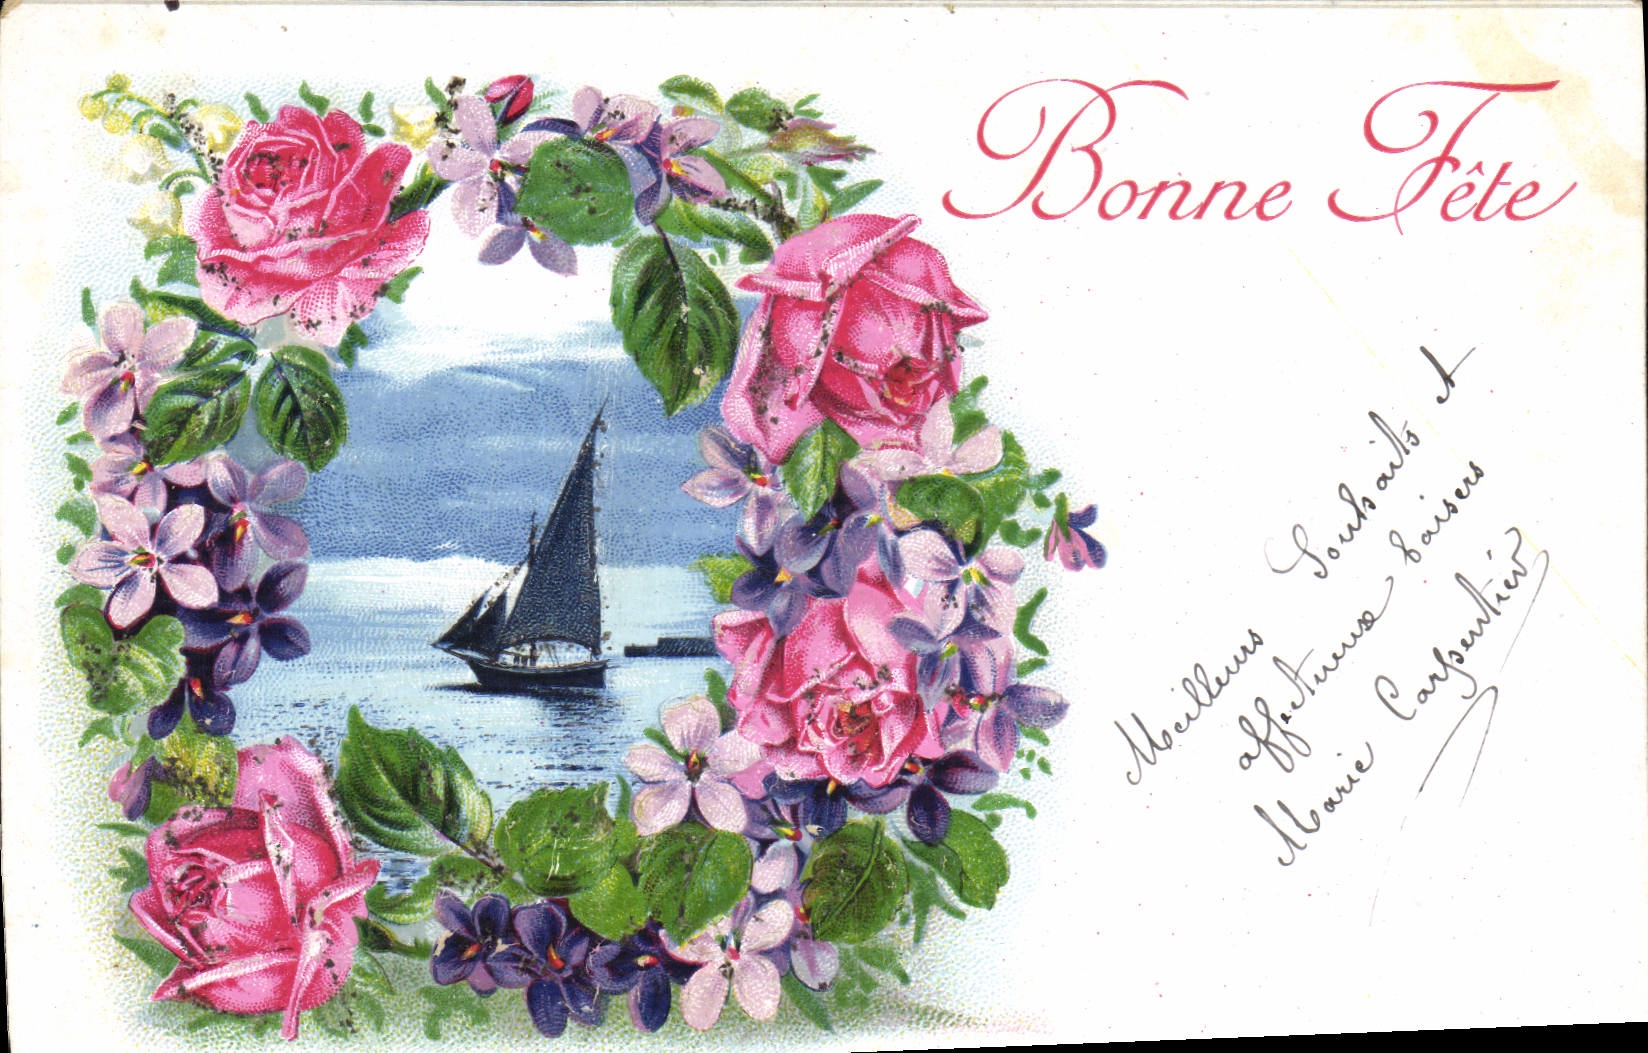 Bonne Fête
Meilleurs Souhaits et
affectueux baisers
Marie Carpentier